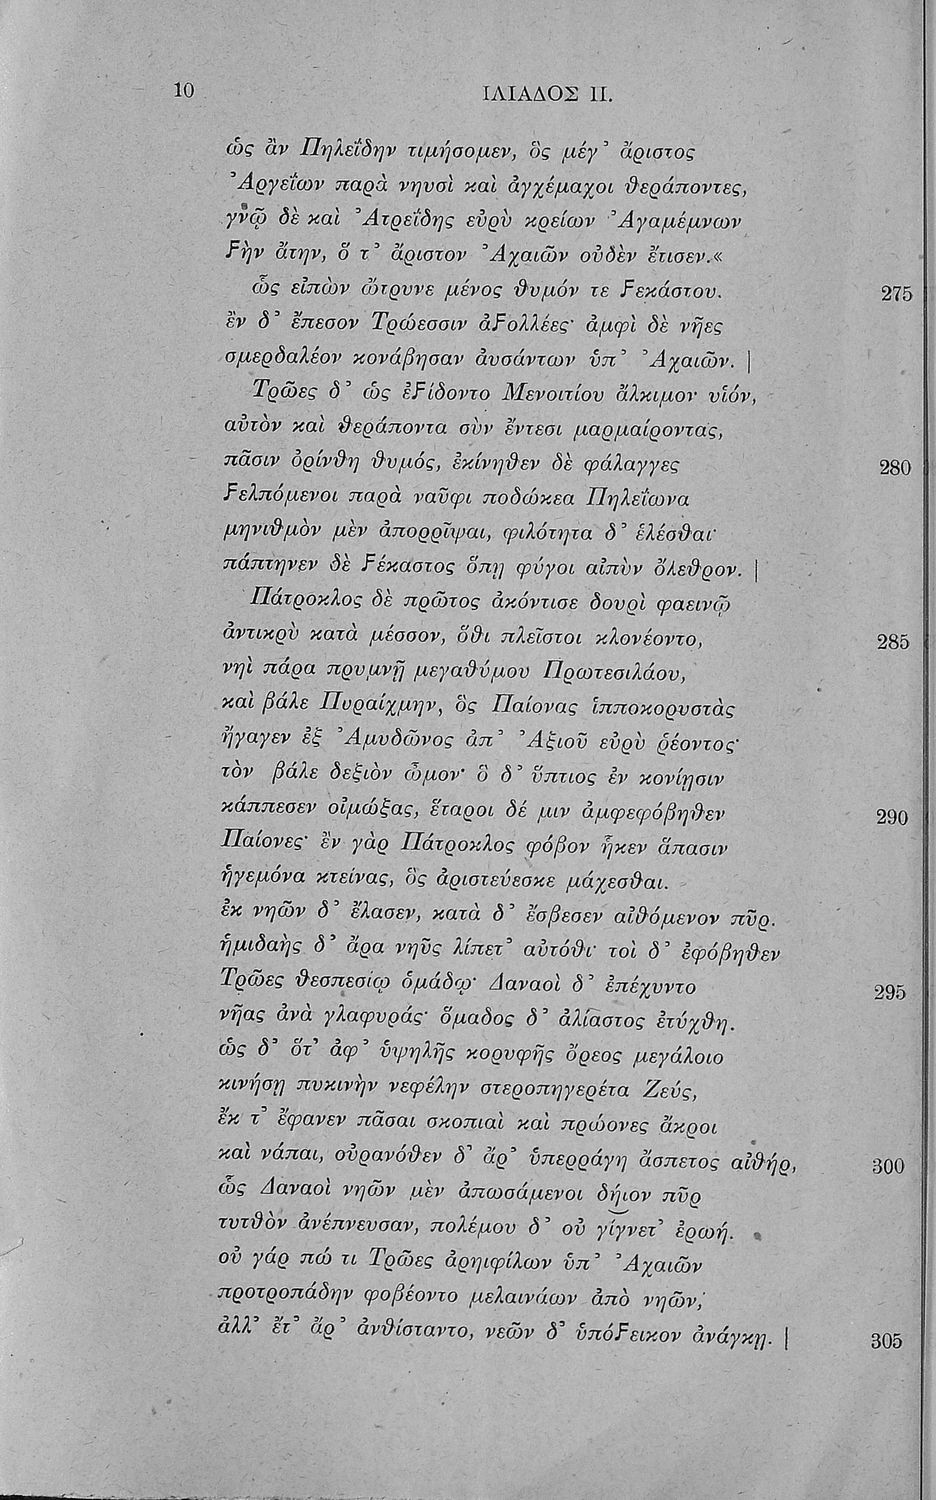 10 ΙΛΙΑΔΟΣ Π.
ὡς ἂν Πηλεΐδην τιμήσομεν, ὃς μέγ’ ἄριστος
Ἀργεΐων παρὰ νηυσὶ καὶ ἀγχέμαχοι θεράποντες,
γνῷ δὲ καὶ Ἀτρεΐδης εὐρὺ κρείων Ἀγαμέμνων
ϝὴν ἄτην, ὅ τ’ ἄριστον Ἀχαιῶν οὐδὲν ἔτισεν.«
ὣς εἰπὼν ὤτρυνε μένος θυμόν τε ϝεκάστου. 275
ἐν δ’ ἔπεσον Τρώεσσιν ἀϝολλέες· ἀμφὶ δὲ νῆες
σμερδαλέον κονάβησαν ἀυσάντων ὑπ’ Ἀχαιῶν. |
Τρῶες δ’ ὡς ἐϝίδοντο Μενοιτίου ἄλκιμον υἱόν,
αὐτὸν καὶ θεράποντα σὺν ἔντεσι μαρμαίροντας,
πᾶσιν ὀρίνθη θυμός, ἐκίνηθεν δὲ φάλαγγες 280
ϝελπόμενοι παρὰ ναῦφι ποδώκεα Πηλεΐωνα
μηνιθμὸν μὲν ἀπορρῖψαι, φιλότητα δ’ ἑλέσθαι·
πάπτηνεν δὲ ϝέκαστος ὅπῃ φύγοι αἰπὺν ὄλεθρον. |
Πάτροκλος δὲ πρῶτος ἀκόντισε δουρὶ φαεινῷ
ἀντικρὺ κατὰ μέσσον, ὅθι πλεῖστοι κλονέοντο, 285
νηὶ πάρα πρυμνῇ μεγαθύμου Πρωτεσιλάου,
καὶ βάλε Πυραίχμην, ὃς Παίονας ἱπποκορυστὰς
ἤγαγεν ἐξ Ἀμυδῶνος ἀπ’ Ἀξιοῦ εὐρὺ ῥέοντος·
τὸν βάλε δεξιὸν ὦμον· ὃ δ’ ὕπτιος ἐν κονίῃσιν
κάππεσεν οἰμώξας, ἕταροι δέ μιν ἀμφεφόβηθεν 290
Παίονες· ἐν γὰρ Πάτροκλος φόβον ἧκεν ἅπασιν
ἡγεμόνα κτείνας, ὃς ἀριστεύεσκε μάχεσθαι.
ἐκ νηῶν δ’ ἔλασεν, κατὰ δ’ ἔσβεσεν αἰθόμενον πῦρ.
ἡμιδαὴς δ’ ἄρα νηῦς λίπετ’ αὐτόθι· τοὶ δ’ ἐφόβηθεν
Τρῶες θεσπεσίῳ ὁμάδῳ· Δαναοὶ δ’ ἐπέχυντο 295
νῆας ἀνὰ γλαφυράς· ὅμαδος δ’ ἀλίαστος ἐτύχθη.
ὡς δ’ ὅτ’ ἀφ’ ὑψηλῆς κορυφῆς ὄρεος μεγάλοιο
κινήσῃ πυκινὴν νεφέλην στεροπηγερέτα Ζεύς,
ἔκ τ’ ἔφανεν πᾶσαι σκοπιαὶ καὶ πρώονες ἄκροι
καὶ νάπαι, οὐρανόθεν δ’ ἄρ’ ὑπερράγη ἄσπετος αἰθήρ, 300
ὣς Δαναοὶ νηῶν μὲν ἀπωσάμενοι δήιον πῦρ
τυτθὸν ἀνέπνευσαν, πολέμου δ’ οὐ γίγνετ’ ἐρωή.
οὐ γάρ πώ τι Τρῶες ἀρηιφίλων ὑπ’ Ἀχαιῶν
προτροπάδην φοβέοντο μελαινάων ἀπὸ νηῶν,
ἀλλ’ ἔτ’ ἄρ’ ἀνθίσταντο, νεῶν δ’ ὑπόϝεικον ἀνάγκῃ. | 305